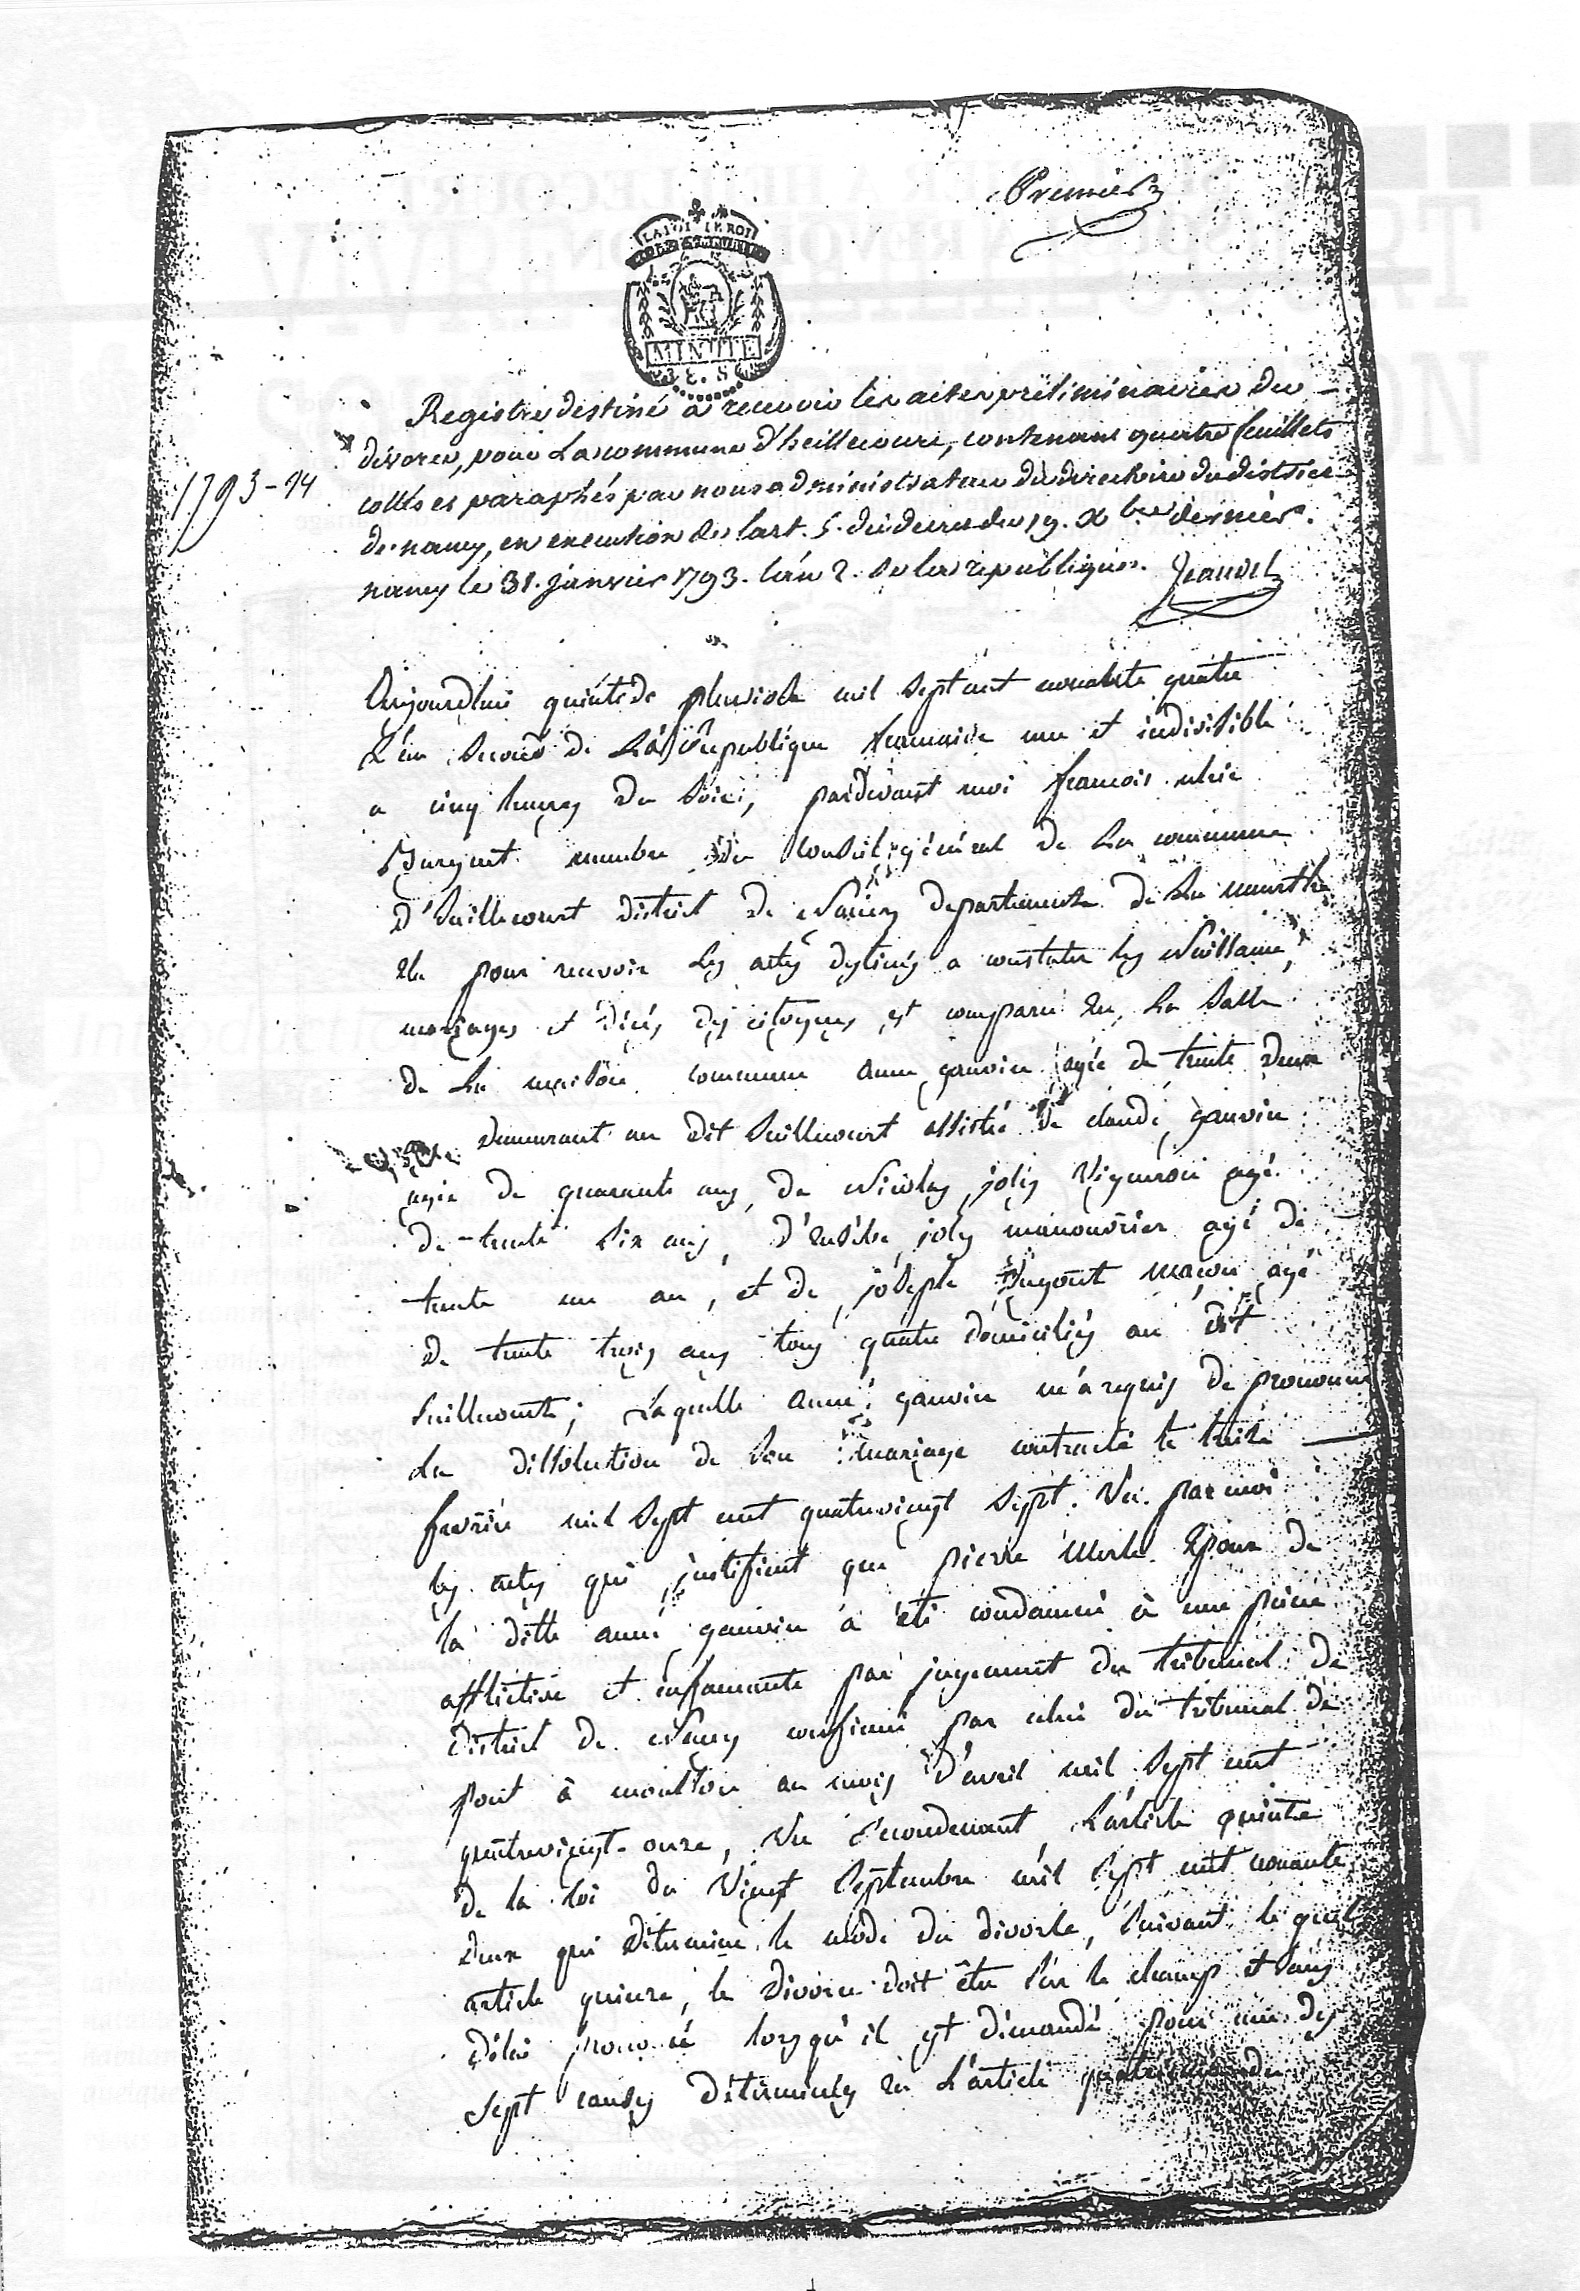 Premier
LA LOI LE ROI
MINUTE
Registre destiné a recevoir les actes préliminaires du
divorce, pour la commune d'heillecourt, contenant quatre feuillets
1793-94
cottés et paraphés par nous administrateur du directoire du district
de nancy, en execution de l'art. 5. du decret du 19. Xbre dernier.
nancy le 31. janvier 1793. l'an 2. de la republique.
Aujourdhui quintidi pluviose mil sept cent nonante quatre
L'an second de La République francaise une et indivisible
a cinq heures du soir, pardevant moi francois
membre du Conseil général de La commune
d'heillecourt district de Nancy departement de La meurthe
élu pour recevoir les actes destinés a constater les Naissances,
mariages et décès des citoyens est comparu en La Salle
de La maison commune anne gauvin agée de trente deux
demeurant au dit heillecourt assistée de claude gauvin
agé de quarante ans, de Nicolas joly Vigneron agé
de trente six ans, d' joly manouvrier agé de
trente un an, et de joseph maçon agé
de trente trois ans tous quatre domiciliés au dit
heillecourt; Laquelle anne gauvin m'a requis de prononcer
La dissolution de son mariage contracté le treize
fevrier mil sept cent quatrevingt sept. Vu par moi
les actes qui justifient que pierre Epoux de
la ditte anne gauvin a été condamné à une peine
afflictive et infamante par jugement du tribunal de
district de Nancy confirmé par celui du tribunal de
pont à mousson au mois d'avril mil sept cent
quatrevingt onze, Vu L'article quinze
de la loi du Vingt Septembre mil sept cent nonante
deux qui détermine le mode du divorce, suivant lequel
article quinze, le divorce doit être sur le champ et sans
délai prononcé lorsqu'il est démandé pour une des
sept causes déterminées en L'article quatrieme du